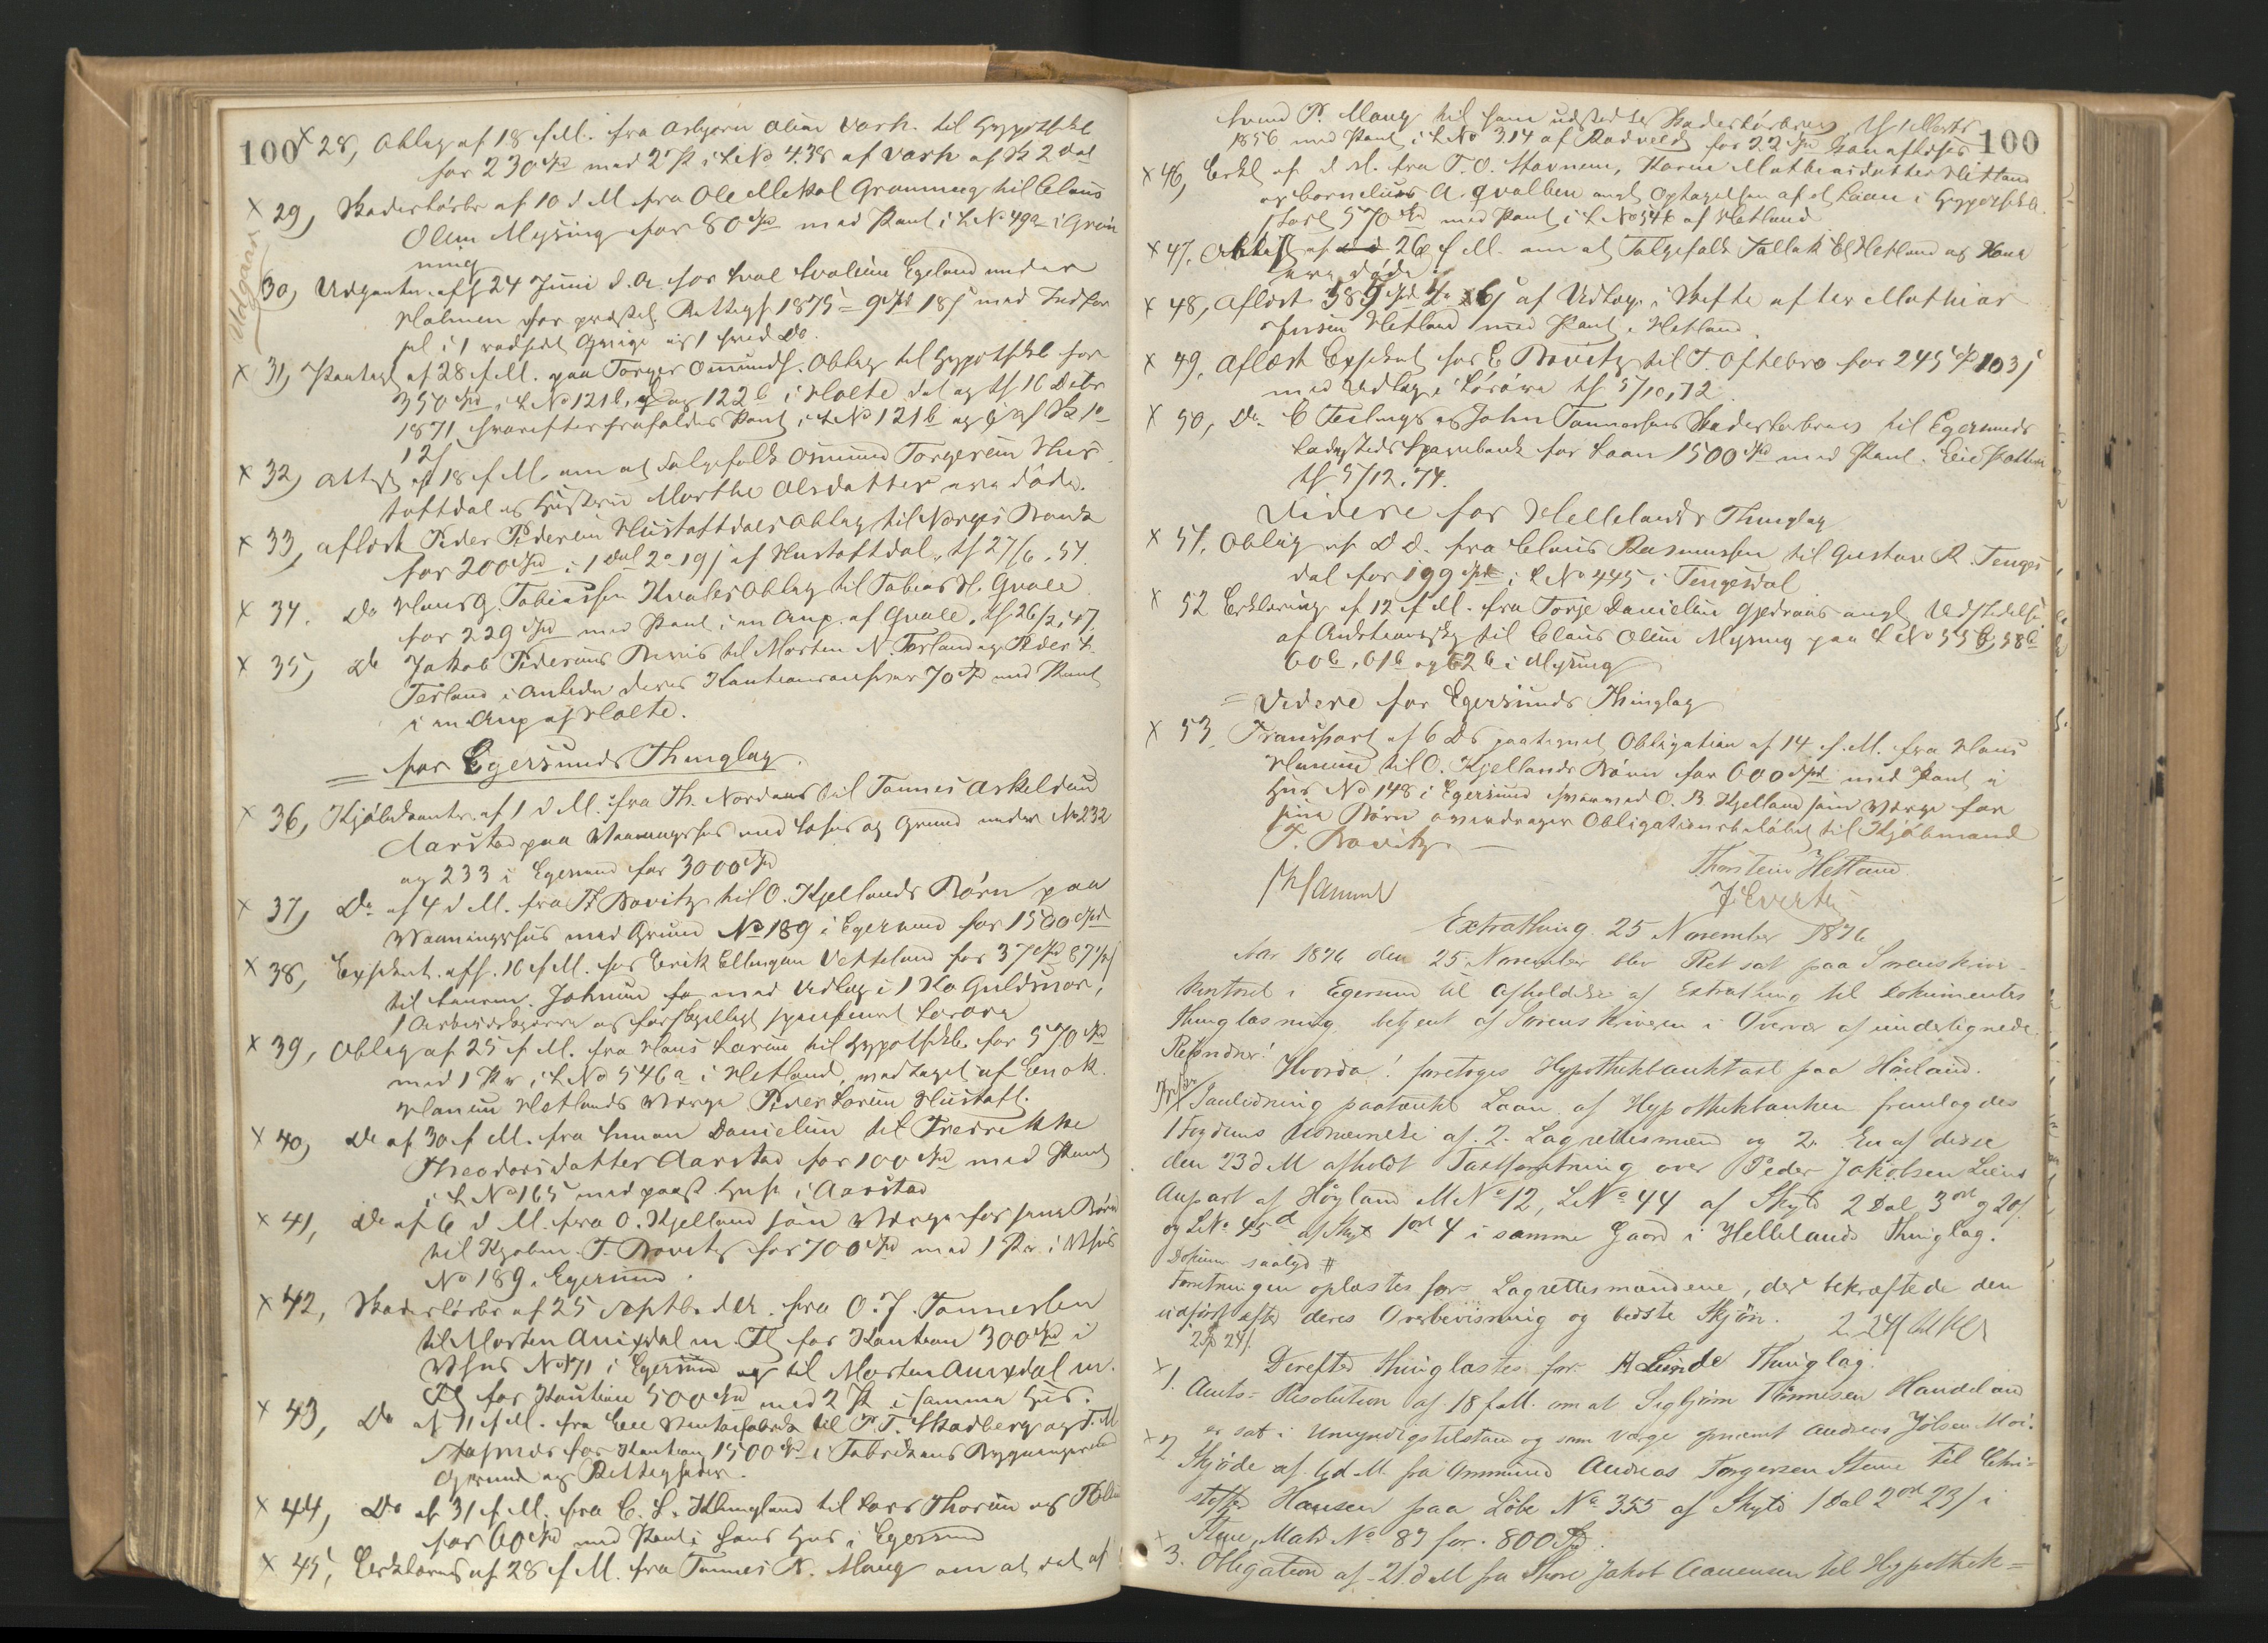 100
× 28, Oblig af 18 f M. fra Asbjørn Olsen Vash. til Hypothkbk
for 230 Spd med 2 Pr i L No 438 af Vash af Sk 2 Dal
× 29, Skadesløsbr af 10 d M fra Ole Mikal Grønning til Claus
Olsen Mysing for 80 Spd med Pant i L No 49a i Grøn
ning
Udgaar
30, 24 Juni d. A. for Egeland
Holmen for 1875 - 9 Spd 18 s med
i 1 og 1 Do.
× 31, af 28 f M. paa Torger Omunds. Oblig til Hypothkbk for
350 Spd i L No 121b, og 122b i Holte dal og tl 16 Debr
1871 hvorefter frafaldes Pant i L No 121b
12 s
× 32, Attest af 18 f M. om at Salgefolk Osmund Torgersen Hus
toftdal og Hustru Marthe Olsdatter ere døde.
× 33, Aflæst Peder Pedersen Hustoftdals Oblig til Norges Bank
for 200 Spd i 1 Dal 2 o 19 s af Hustoftdal. tl 27/6. 57.
× 34. Do Hans G. Tobiassen Kvales Oblig til Tobias H. Gvale
for 229 Spd med Pant i en Anp. af Gvale, tl 26/2, 47.
× 35, Do Jakob Pedersens Bevis til Morten N. Terland og Peder
Terland i Anledn deres Kautionsansvar 70 Spd med Pant
i en Anp af Holte.
= for Egersunds Thinglag.
× 36, Kjøbekontr. af 1 d M. fra Th. Nordaas til Tønnes Askeldsen
Aarstad paa Vaaningshus med og Grund under No 232
og 233 i Egersund for 3000 Spd
× 37, Do af 4 d M. fra Th Bovitz til O. Kjellands Børn paa
Vaaningshus med Grund No 189 i Egersund for 1500 Spd
× 38, Exsekut. afh. 16 f M. for Erik Ellingsen Vetteland for 37 Spd 87 s
til Johnsen med Udlæg i 1 Ko Guldmor,
1 og forskjelligt Løsøre
× 39, Oblig af 25 f M. fra Hans Larsen til Hypothkbk for 570 Spd
med 1 Pr i L No 546a i Hetland, medtaget af Enok
Hansen Hetlands Værge Peder Larsen Hustoft.
× 40, Do af 30 f M. fra Danielsen til Fredrikke
Theodorsdatter Aarstad for 100 Spd med Pant
i L No 165 med paast. Huse i Aarstad
× 41, Do af 6 d M. fra O. Kjelland som Værge for sine Børn
til Kjøbm. T. Bovitz for 700 Spd med 1 Pr i Vhus
No 189. Egersund.
× 42, Skadesløsbr af 25 Septb. d A. fra O. J. Tønnesen
til Morten Auestdal m. Fl for Kaution 300 Spd i
Vhus No 171 i Egersund og til Morten Auestdal m.
Fl for Kaution 500 Spd med 2 Pr i samme Hus.
× 43, Do af 11 f M. fra Eie til P. T. Skadberg og T. M
for Kaution 1500 Spd i Fabrikens Bygninger med
Grund og Rettigheder.
× 44, Do af 31 f M. fra C. L. Klungland til Lars Thorsen og
for 60 Spd med Pant i hans Hus i Egersund
× 45, Erklæring af 28 f M. fra Tønnes N. Maug om at det af
100
Svend P. Maug til ham udstedte Skadesløsbrev tl 1 Marts
1856 med Pant i L No 314 af Rodvelt for 22 Spd kan aflæses
× 46, Erkl af d M. fra T. O. Stavnem, Karen Mathiasdatter Hetland
og Cornelius A. Qvalben angl Optagelsen af et Laan i Hypothkb
stort 570 Spd med Pant i L No 546 af Hetland
× 47. Attest af 26 f M. om at Salgefolk Tallak Hetland og Kone
ere døde.
× 48, Aflæst 389 Spd af Udlæg i Skifte efter Mathias
Hetland med Pant i Hetland.
× 49. Aflæst Exsekut for E. Bovitz til T. Oftebro for 245 Spd 103 s
med Udlæg i Løsøre tl 5/10, 72.
× 50, Do C Feilings og John Tønnessens Skadesløsbrev til Egersunds
Ladesteds Sparebank for Laan 1500 Spd med Pant. Eie
tl 5/12. 74.
Videre for Hellelands Thinglag
× 51. Oblig af D d. fra Claus Rasmussen til Gustav R. Tenges
dal for 199 Spd i L No 445 i Tengesdal
× 52 Erklæring af 12 f M. fra Torje Danielsen Gjedraas angl Udstedelse
af til Claus Olsen Mysing paa L No 55b, 58b
60b, 61b og 62b i Mysing
= Videre for Egersunds Thinglag
× 53, Transport af 6 Ds paategnet Obligation af 14 f. M. fra Hans
Hansen til O. Kjellands Børn for 600 Spd med Pant i
Hus No 148 i Egersund hvorved O. B Kjelland som Værge for
sine Børn overdrager Obligationsbeløbet til Kjøbmand
T. Bovitz. —
Thorstein Hetland.
J. Everts
Extrathing 25 November 1876
Aar 1876 den 25 November blev Ret sat paa Sorenskriver-
kontoret i Egersund til Afholdelse af Extrathing til Dokumenters
Thinglæsning betjent af Sorenskriveren i Overvær af undertegnede
Retsvidner!
Hvorda! foretoges Hypothekbanktaxt paa Høiland.
I Anledning paatænkt Laan af Hypothekbanken fremlagdes
1 Fogdens Udnævnelse af 2 Lagrettesmænd og 2. En af disse
den 23 d M afholdt Taxtforretning over Peder Jakobsen Liens
Anpart af Høyland M No 12, L No 44 af Skyld 2 Dal 3 ort 9 20 s
og L No 45d af Skyld 1 ort 4 i samme Gaard i Hellelands Thinglag.
Dokum saalyd #
Forretningen oplæstes for Lagrettesmændene, der bekræftede den
udført efter deres Overbevisning og bedste Skjøn. 2. 24 s
2 Sp 24 s
Derefter thinglæstes for Lunde Thinglag.
× 1. Amts-Resolution af 18 f M. om at Sigbjørn Tønnesen Handeland
er sat i Umyndigstilstand og som Værge opnævnt Andreas Jølsen Moi.
× 2 Skjøde af 4 d M. fra Ommund Andreas Torgersen Stene til Chri-
stoffer Hansen paa Løbe No 355 af Skyld 1 Dal 2 ort 23 s i
Stene, Matr No 83 for 800 Spd.
× 3. Obligation af 21 d M fra Skore Jakob Aanensen til Hypothek=